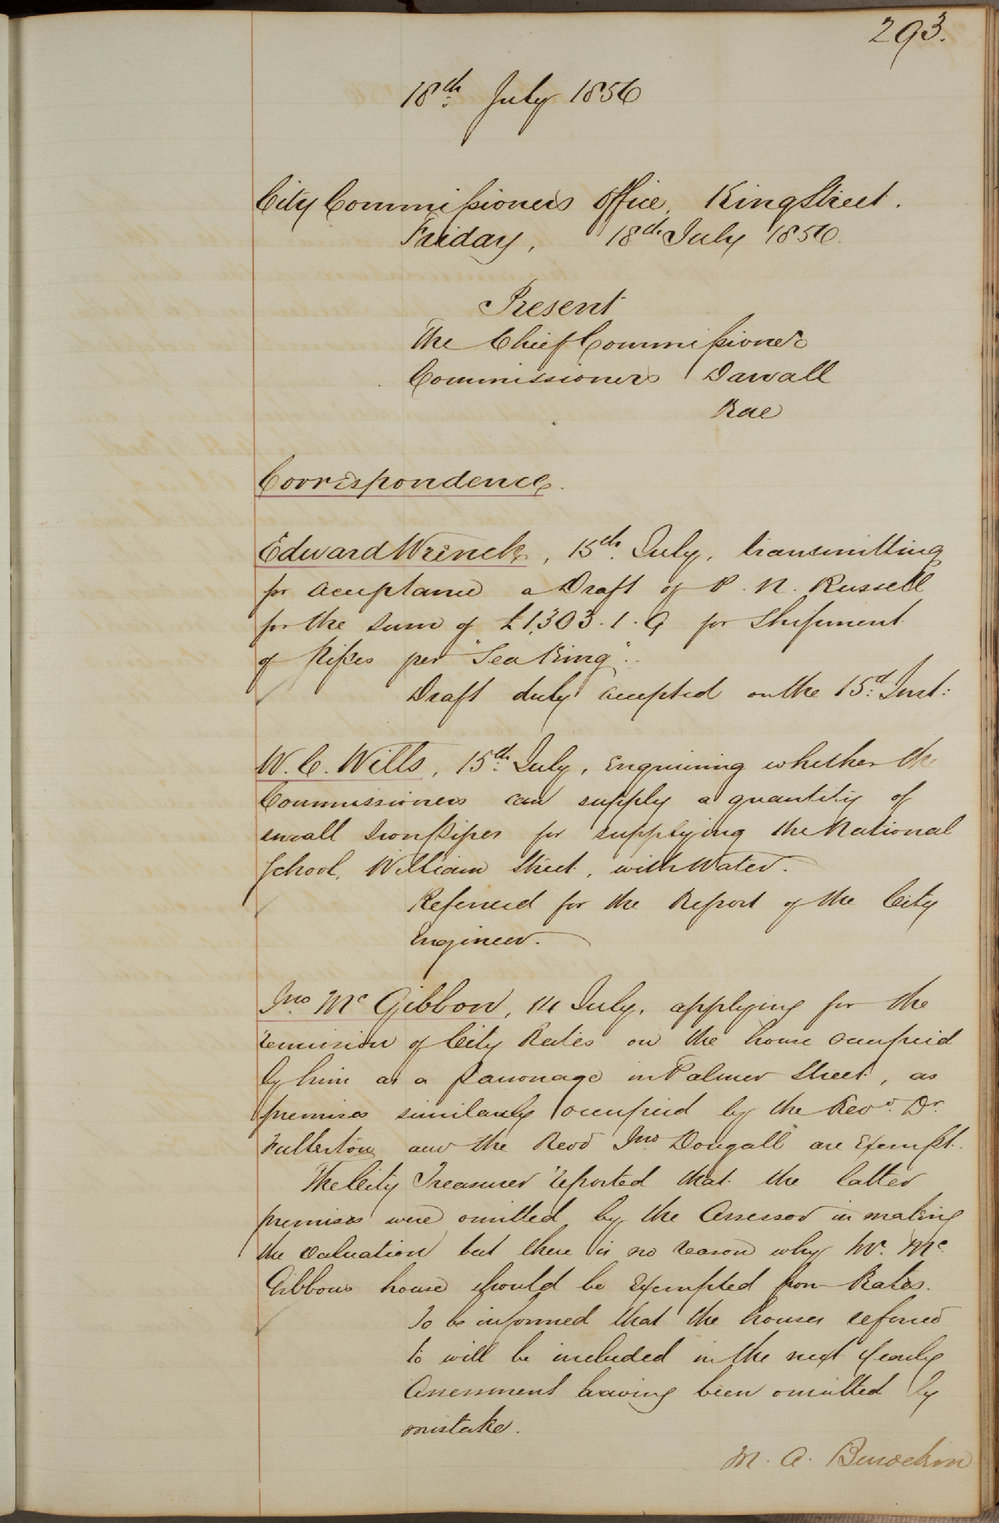 293.
18th July 1856
City Commissioners Office, King Street.
Friday, 18th July 1856.
Present
The Chief Commissioner
Commissioners Darvall
Rae
Correspondence.
Edward Wrench, 15th July, transmitting
for acceptance a Draft of P. N. Russell
for the sum of £1,303.1.9 for Shipment
of Pipes per "Sea King".
Draft duly accepted on the 15th Inst:
W. C. Wills, 15th July, Enquiring whether the
Commissioners can supply a quantity of
small Iron Pipes for supplying the National
School, William Street, with Water.
Referred for the Report of the City
Engineer.
Jno. McGibbon, 14 July, applying for the
remission of City Rates on the house occupied
by him as a Parsonage in Palmer Street, as
premises similarly occupied by the Revd. Dr.
Fullerton and the Revd Jno Dougall are Exempt.
The City Treasurer reported that the latter
premises were omitted by the Assessor in making
the valuation but there is no reason why Mr. Mc
Gibbons house should be Exempted from Rates.
To be informed that the houses referred
to will be included in the next yearly
Assessment having been omitted by
mistake.
M. A.